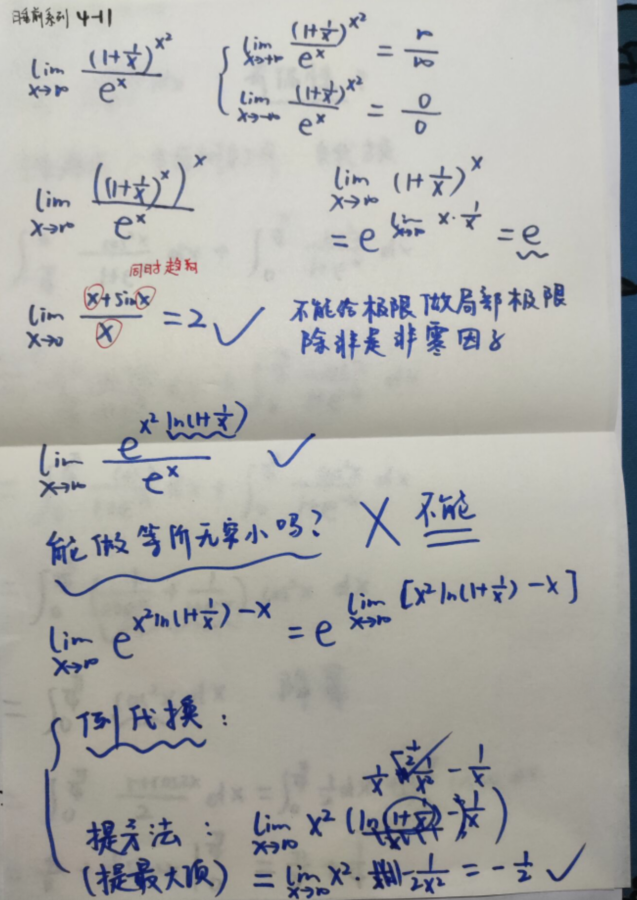 睡前系列 4-11
lim x→∞ (1+1/x)^x² / e^x { lim x→+∞ (1+1/x)^x² / e^x = ∞/∞
lim x→-∞ (1+1/x)^x² / e^x = 0/0
lim x→∞ ((1+1/x)^x)^x / e^x lim x→∞ (1+1/x)^x
= e^(lim x→∞ x·1/x) = e
同时趋向
lim x→0 (x+sinx)/x = 2 ✓ 不能给极限做局部极限
除非是非零因子
lim x→∞ e^(x² ln(1+1/x)) / e^x ✓
能做等价无穷小吗? ✗ 不能
lim x→∞ e^(x²ln(1+1/x)-x) = e^(lim x→∞ [x²ln(1+1/x)-x])
{ 倒代换:
提示法: lim x→∞ x² (ln(1+1/x) - 1/x)
(提最大项) = lim x→∞ x²· -1/2x² = -1/2 ✓